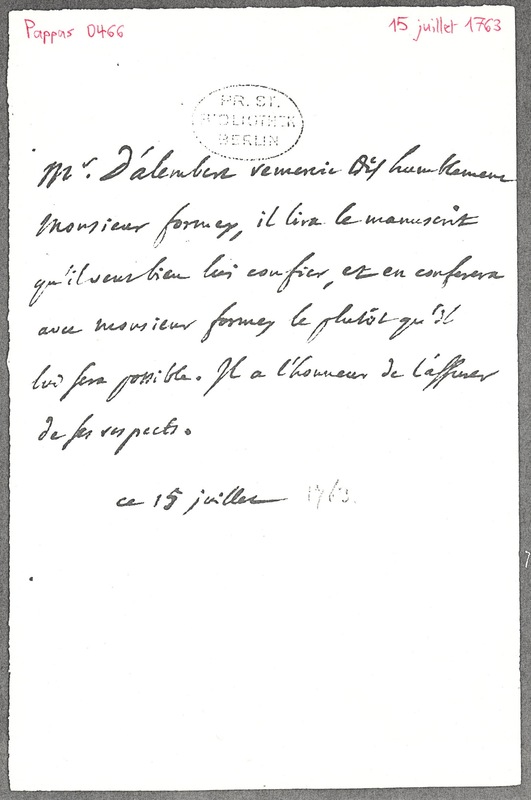 Pappas 0466
15 juillet 1763
PR. ST.
BIBLIOTHEK
BERLIN
Mr. D'alembert remercie très humblement
Monsieur formey, il lira le manuscrit
qu'il veut bien lui confier, et en conferera
avec monsieur formey le plutôt qu'il
lui sera possible. Il a l'honneur de l'assurer
de ses respects.
ce 15 juillet 1763.